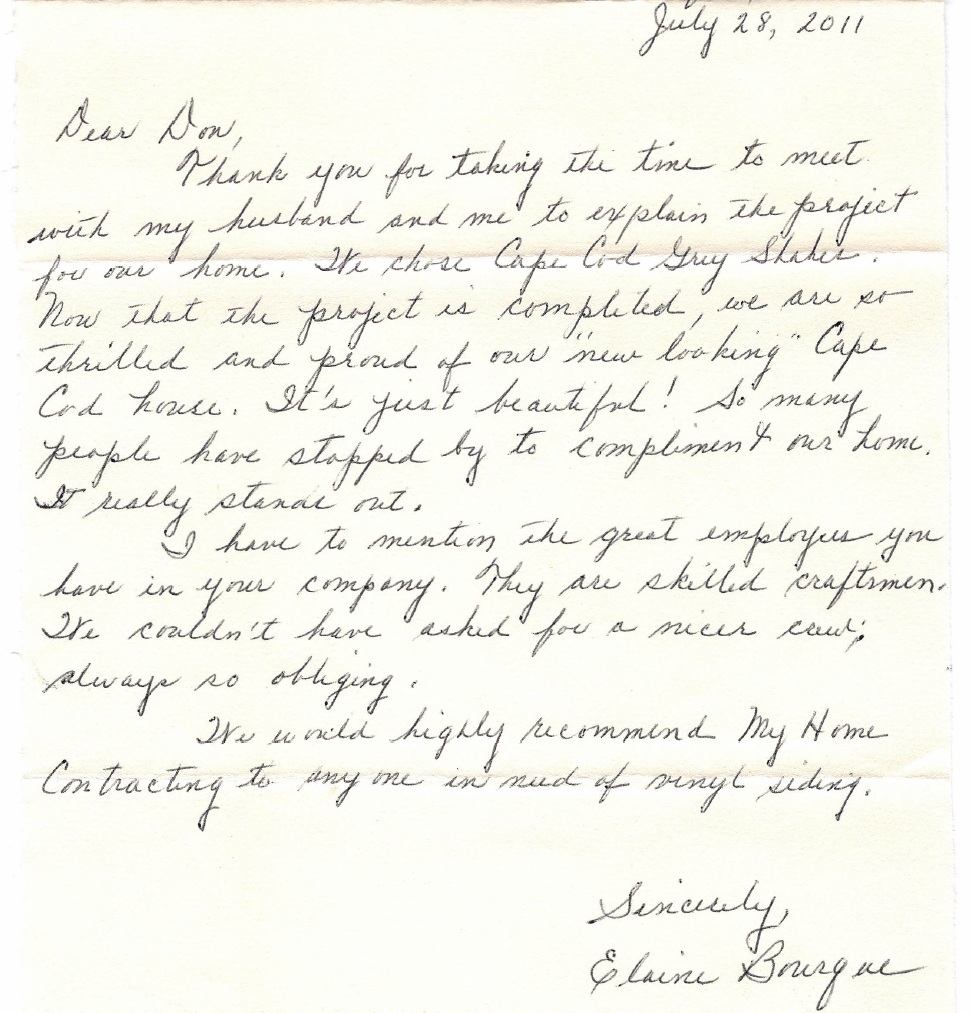 July 28, 2011
Dear Don,
Thank you for taking the time to meet
with my husband and me to explain the project
for our home. We chose Cape Cod Grey Shakes.
Now that the project is completed, we are so
thrilled and proud of our "new looking" Cape
Cod house. It's just beautiful! So many
people have stopped by to compliment our home.
It really stands out.
I have to mention the great employees you
have in your company. They are skilled craftsmen.
We couldn't have asked for a nicer crew;
always so obliging.
We would highly recommend My Home
Contracting to anyone in need of vinyl siding.
Sincerely,
Elaine Bourque